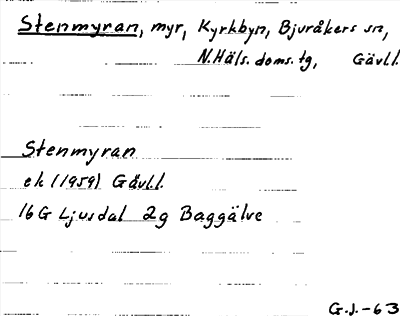 Stenmyran, myr, Kyrkbyn, Bjuråkers sn,
N.Häls. doms. tg, Gävl.l.
Stenmyran
ek (1959) Gävl.l.
16G Ljusdal 2g Baggälve
G.J.-63